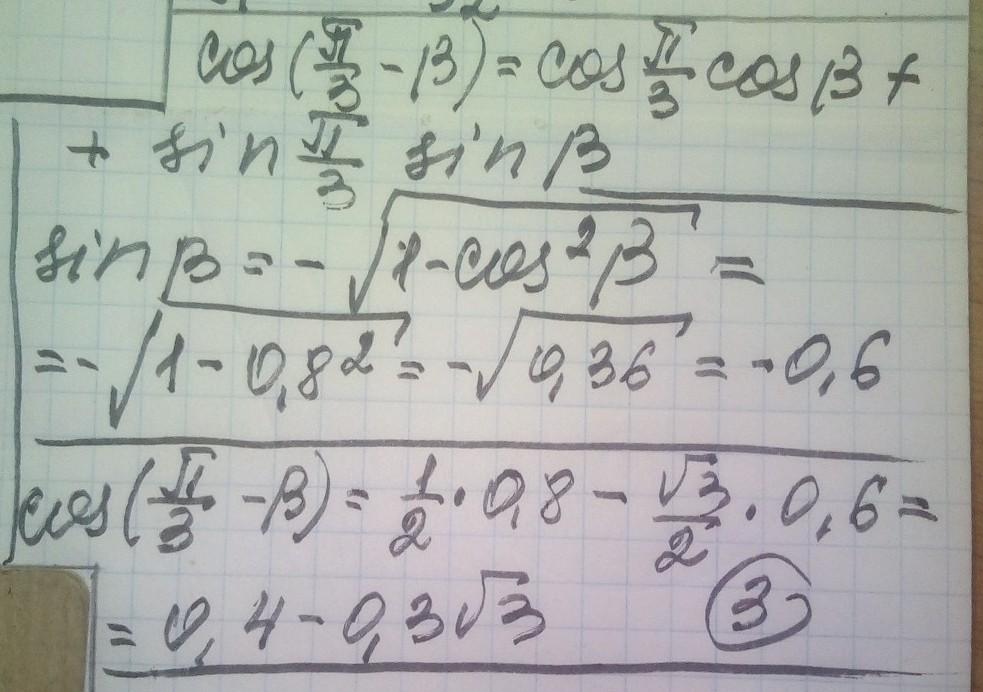 cos(π/3 - β) = cos π/3 cos β +
+ sin π/3 sin β
sin β = -√(1-cos²β) =
= -√(1-0,8²) = -√(0,36) = -0,6
cos(π/3 - β) = 1/2 · 0,8 - √3/2 · 0,6 =
= 0,4 - 0,3√3 3